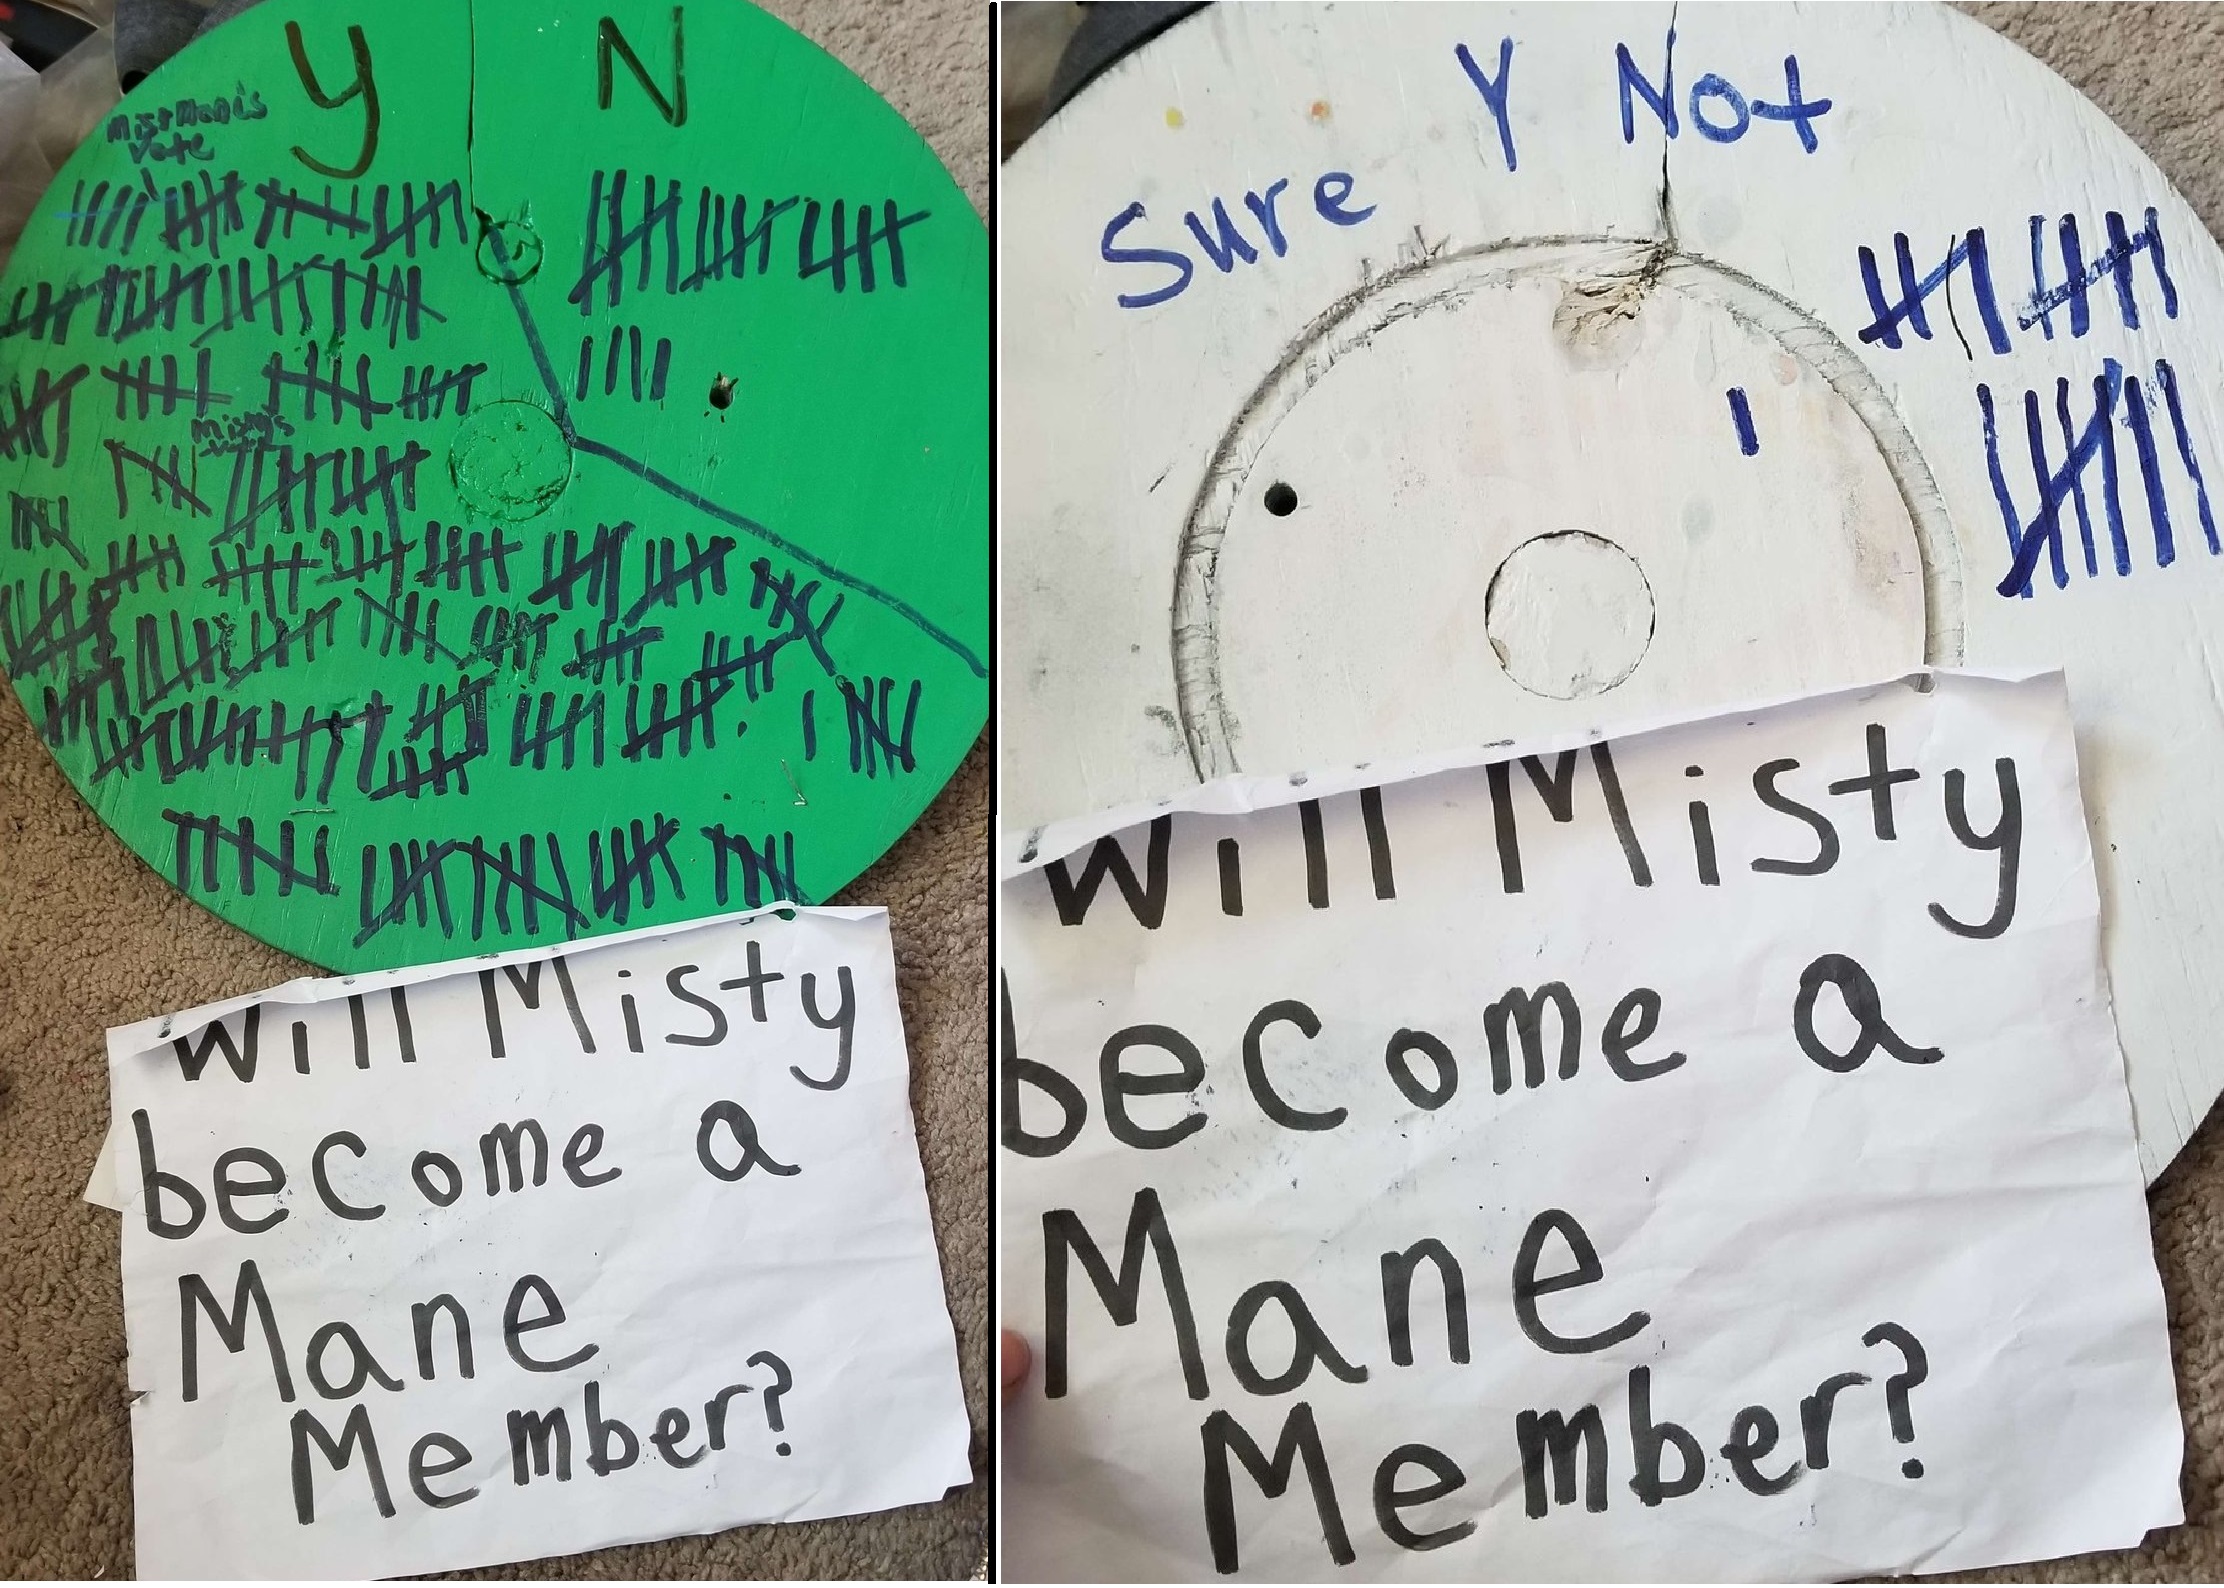 Y N
MistMan's
Vote
Misty's
Will Misty
become a
Mane
Member?
Sure Y Not
Will Misty
become a
Mane
Member?